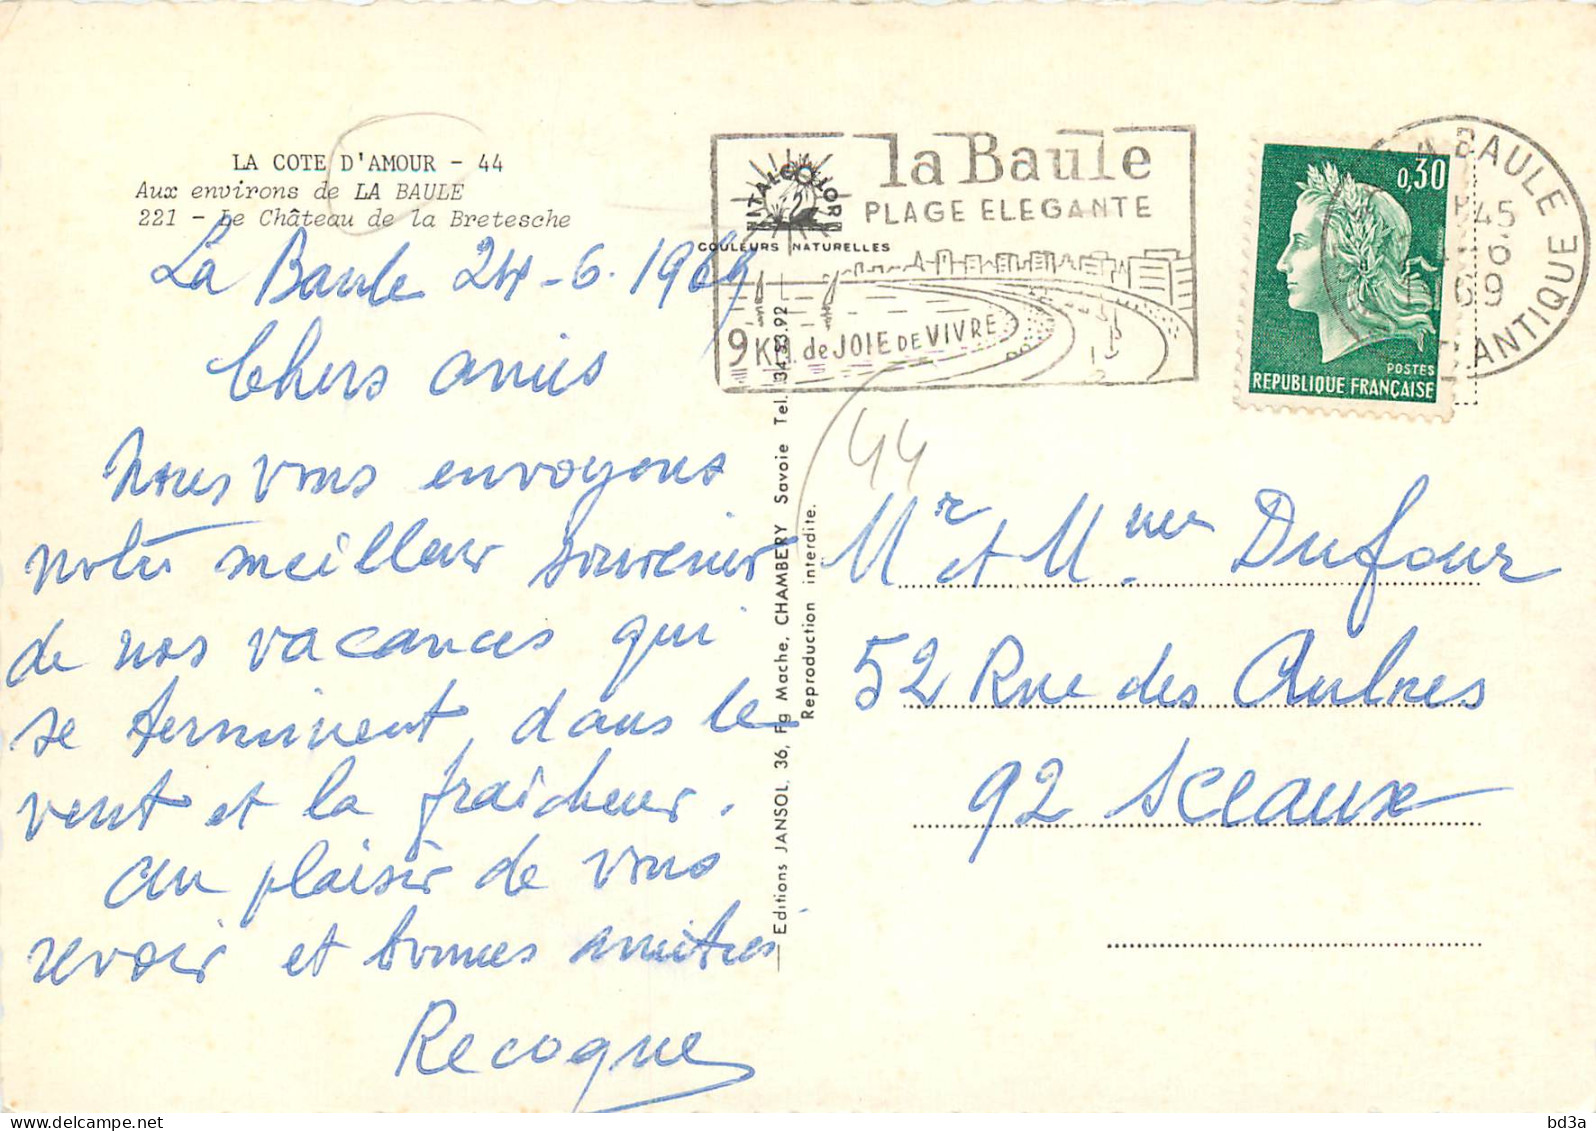 LA COTE D'AMOUR - 44
Aux environs de LA BAULE
221 - Le Château de la Bretesche
La Baule 24-6.1969
Chers amis
Nous vous envoyons
notre meilleur souvenir
de nos vacances qui
se terminent, dans le
vent et la fraîcheur.
au plaisir de vous
revoir et bonnes amitiés
Recoque
ITALCOLOR
COULEURS NATURELLES
la Baule
PLAGE ELEGANTE
9 KM. de JOIE DE VIVRE
0,30
POSTES
REPUBLIQUE FRANÇAISE
LA BAULE
45
6
69
ANTIQUE
44
Editions JANSOL, 36, Fg Mache, CHAMBERY Savoie Tel. 34.33.92
Reproduction interdite.
Mr et Mme Dufour
52 Rue des Aulnes
92 Sceaux
bd3a